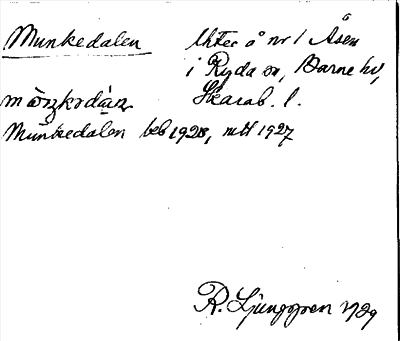 Munkedalen Uter å nr 1 Åsen
i Ryda sn, Barne hd,
Skarab. l.
Munkedalen beb 1928, utt 1927
R. Ljunggren 1929